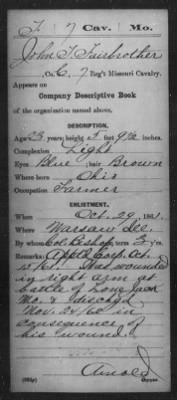 F. 7 Cav. Mo.
John T. Fairbrother
, Co. C, 7 Reg't Missouri Cavalry.
Appears on
Company Descriptive Book
of the organization named above.
DESCRIPTION.
Age 23 years; height 5 feet 9½ inches.
Complexion Light
Eyes Blue ; hair Brown
Where born Ohio
Occupation Farmer
ENLISTMENT.
When Oct. 29, 1861.
Where Warsaw
By whom Col. Bishop term 3 y'rs.
Remarks: App'td Corp. Oct.
Was wounded
in right arm at
battle of Lone Jack
Mo. & disch'g'd
Nov. 24/62 in
consequence of
his wound.
Arnold
Copyist.